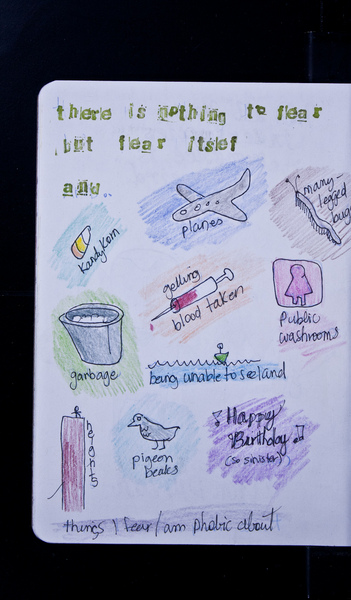 there is nothing to fear
but fear itself
and..
many-
legged
bugs
planes
KandyKorn
getting
blood taken
public
washrooms
garbage
being unable to see land
heights
Happy
Birthday
(so sinister)
pigeon
beaks
things I fear/am phobic about